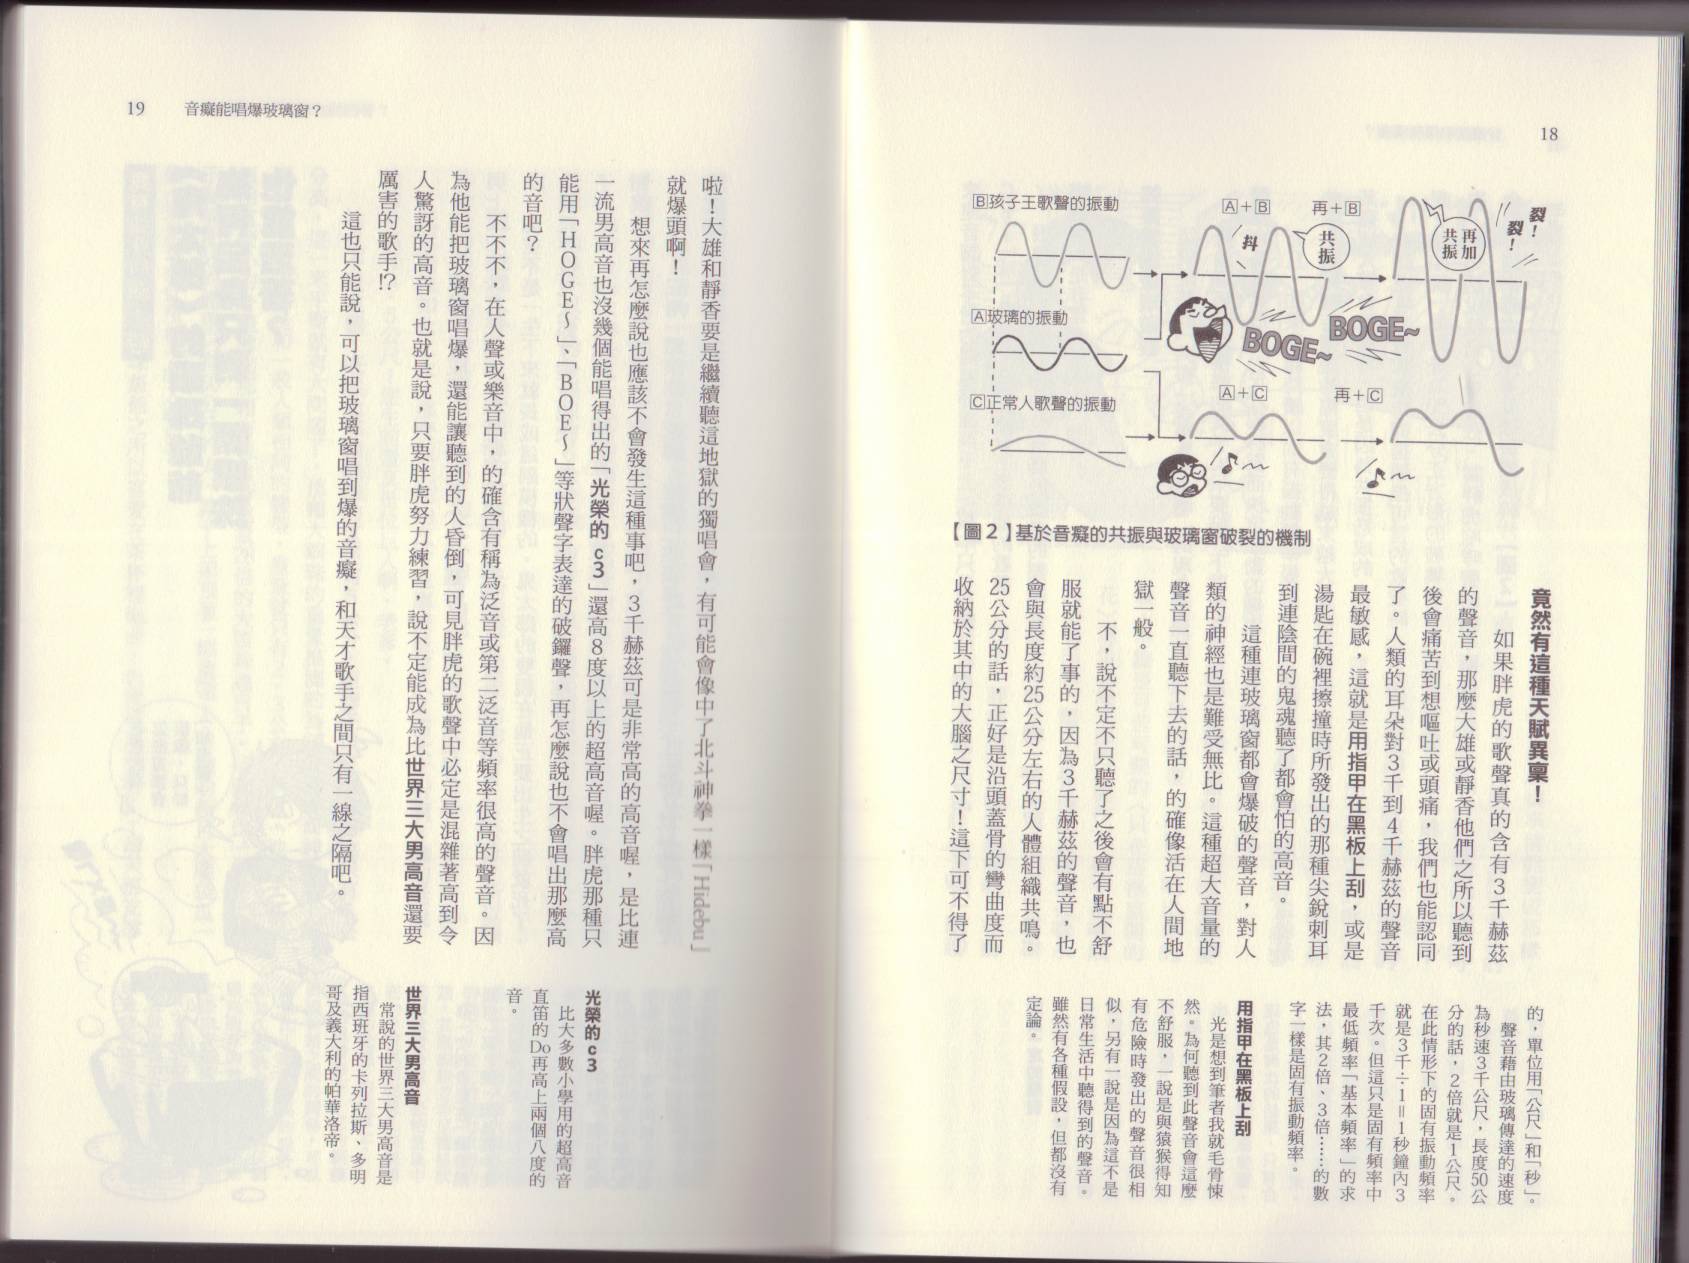 18
B孩子王歌聲的振動
A+B
再+B
抖
共振
再加共振
裂！
裂！
A玻璃的振動
BOGE~
BOGE~
C正常人歌聲的振動
A+C
再+C
【圖2】基於音癡的共振與玻璃窗破裂的機制
竟然有這種天賦異稟！
如果胖虎的歌聲真的含有3千赫茲
的聲音，那麼大雄或靜香他們之所以聽到
後會痛苦到想嘔吐或頭痛，我們也能認同
了。人類的耳朵對3千到4千赫茲的聲音
最敏感，這就是用指甲在黑板上刮，或是
湯匙在碗裡擦撞時所發出的那種尖銳刺耳
到連陰間的鬼魂聽了都會怕的高音。
這種連玻璃窗都會爆破的聲音，對人
類的神經也是難受無比。這種超大音量的
聲音一直聽下去的話，的確像活在人間地
獄一般。
不，說不定不只聽了之後會有點不舒
服就能了事的，因為3千赫茲的聲音，也
會與長度約25公分左右的人體組織共鳴。
25公分的話，正好是沿頭蓋骨的彎曲度而
收納於其中的大腦之尺寸！這下可不得了
的，單位用「公尺」和「秒」。
聲音藉由玻璃傳達的速度
為秒速3千公尺，長度50公
分的話，2倍就是1公尺。
在此情形下的固有振動頻率
就是3千÷1＝1秒鐘內3
千次。但這只是固有頻率中
最低頻率「基本頻率」的求
法，其2倍、3倍……的數
字一樣是固有振動頻率。
用指甲在黑板上刮
光是想到筆者我就毛骨悚
然。為何聽到此聲音會這麼
不舒服，一說是與猿猴得知
有危險時發出的聲音很相
似，另有一說是因為這不是
日常生活中聽得到的聲音。
雖然有各種假設，但都沒有
定論。
19
音癡能唱爆玻璃窗？
啦！大雄和靜香要是繼續聽這地獄的獨唱會，有可能會像中了北斗神拳一樣「Hidebu」
就爆頭啊！
想來再怎麼說也應該不會發生這種事吧，3千赫茲可是非常高的高音喔，是比連
一流男高音也沒幾個能唱得出的「光榮的c3」還高8度以上的超高音喔。胖虎那種只
能用「HOGE～」、「BOE～」等狀聲字表達的破鑼聲，再怎麼說也不會唱出那麼高
的音吧？
不不不，在人聲或樂音中，的確含有稱為泛音或第二泛音等頻率很高的聲音。因
為他能把玻璃窗唱爆，還能讓聽到的人昏倒，可見胖虎的歌聲中必定是混雜著高到令
人驚訝的高音。也就是說，只要胖虎努力練習，說不定能成為比世界三大男高音還要
厲害的歌手!?
這也只能說，可以把玻璃窗唱到爆的音癡，和天才歌手之間只有一線之隔吧。
光榮的c3
比大多數小學用的超高音
直笛的Do再高上兩個八度的
音。
世界三大男高音
常說的世界三大男高音是
指西班牙的卡列拉斯、多明
哥及義大利的帕華洛帝。